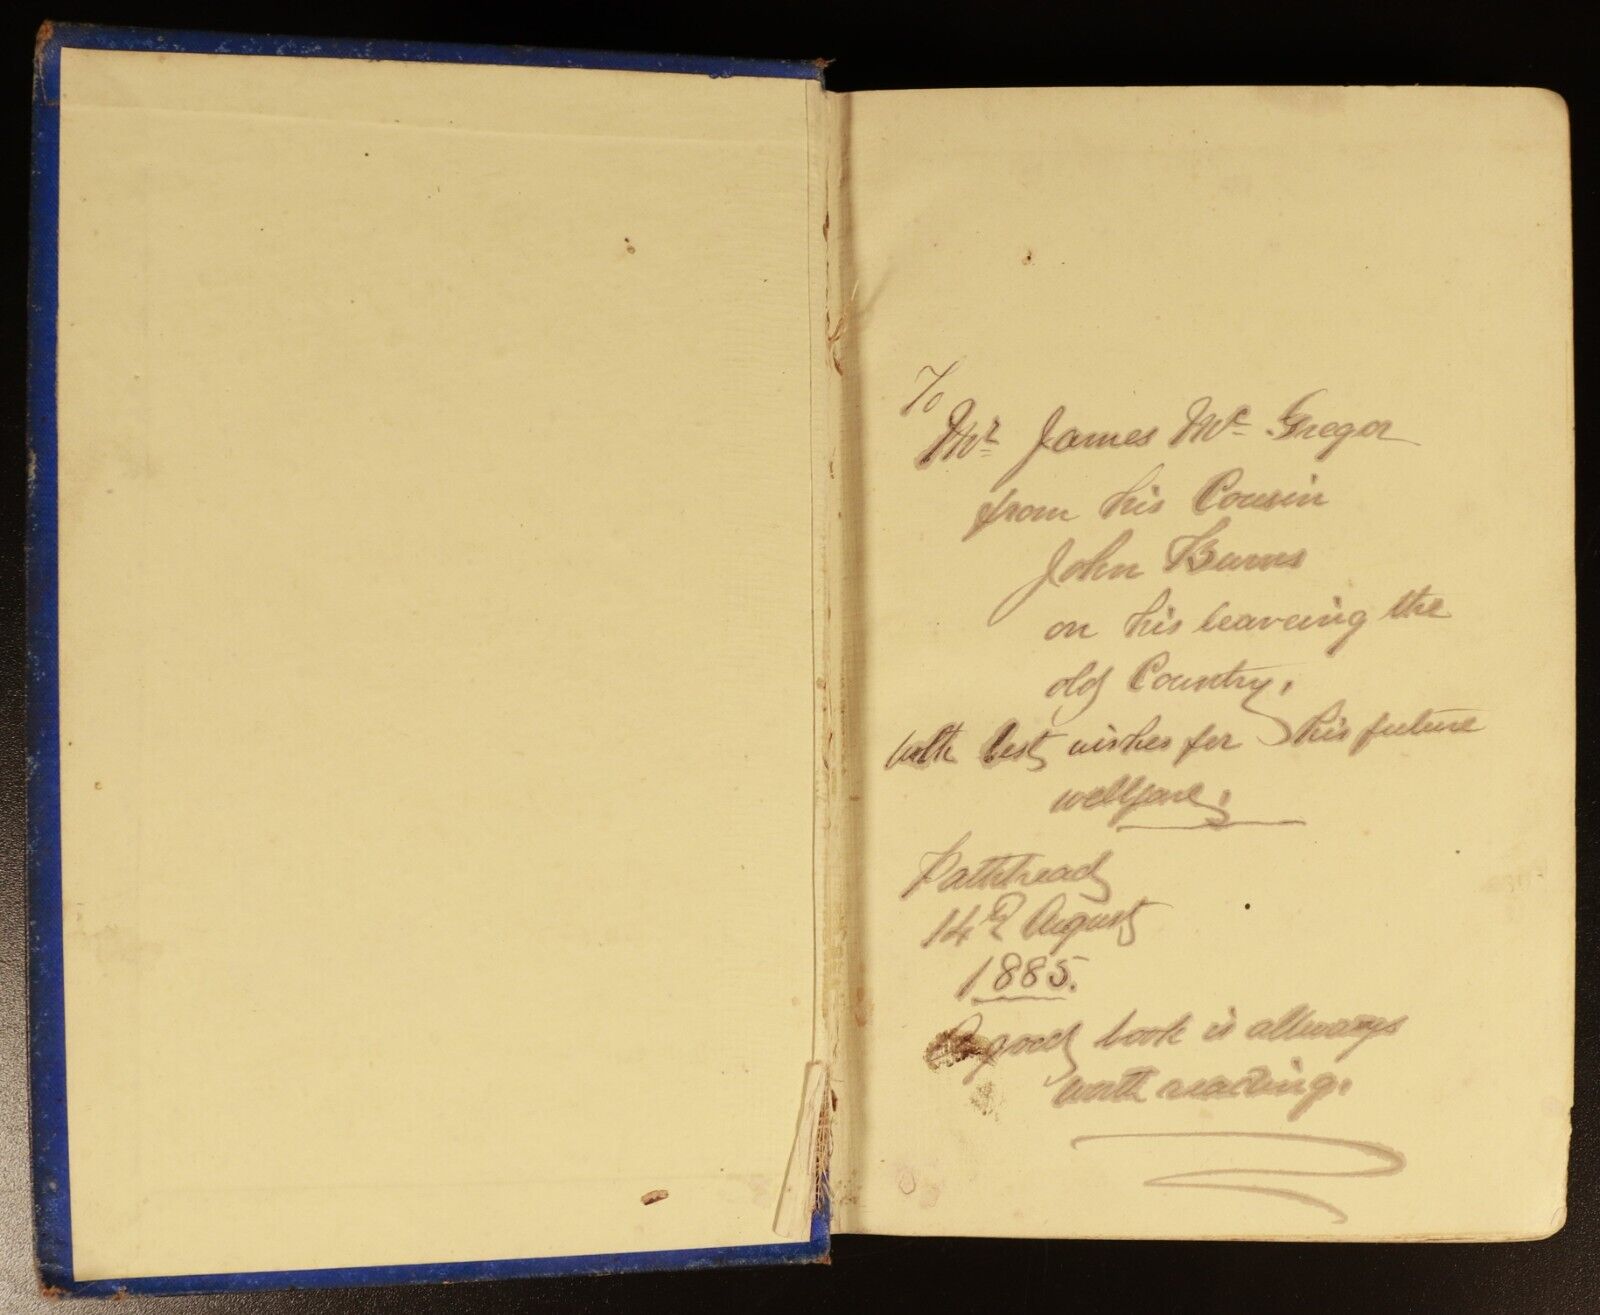 To
Mr James Mc Gregor
from his Cousin
John Burns
on his leaveing the
old Country.
with best wishes for his future
wellfare.
Pathhead
14th August
1885.
A good book is allways
worth reading.